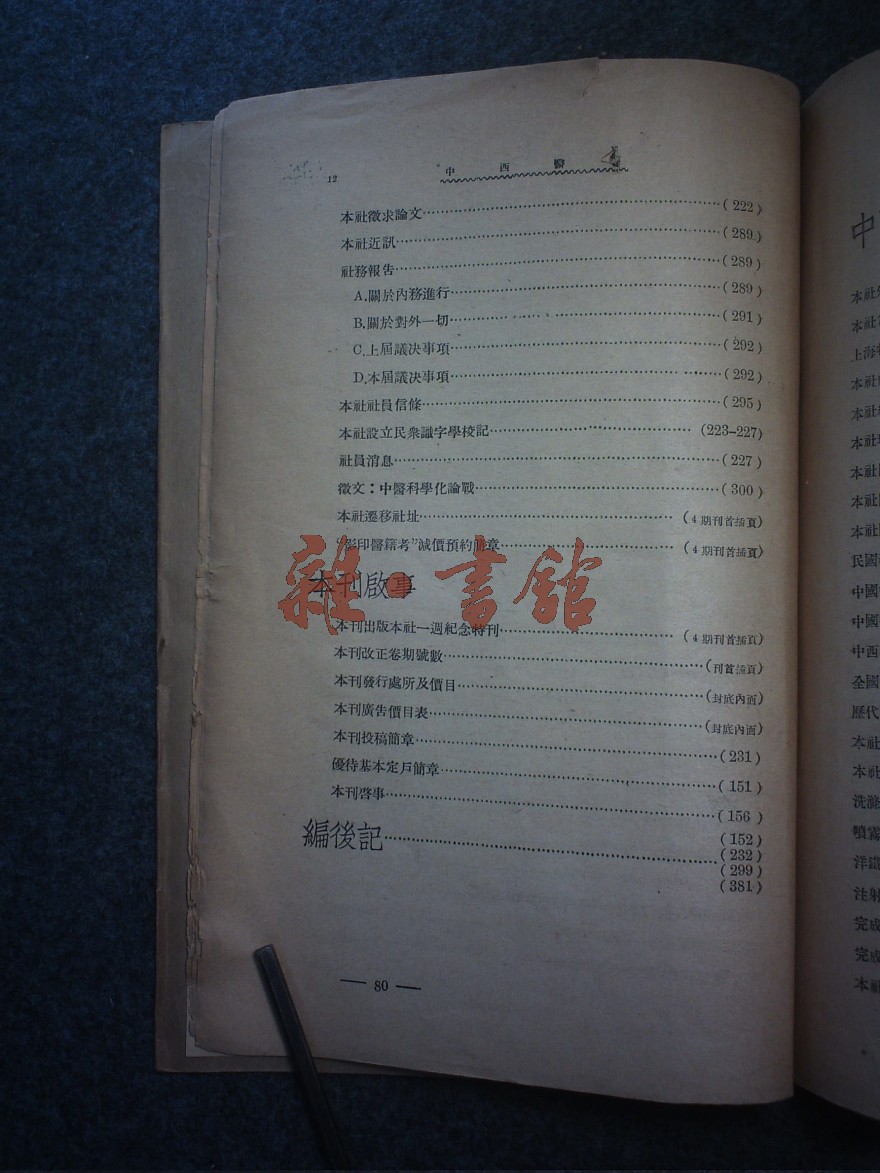 12
中西醫
本社徵求論文……(222)
本社近訊……(289)
社務報告……(289)
A.關於內務進行……(289)
B.關於對外一切……(291)
C.上屆議决事項……(292)
D.本屆議决事項……(292)
本社社員信條……(295)
本社設立民衆識字學校記……(223-227)
社員消息……(227)
徵文：中醫科學化論戰……(300)
本社遷移社址……(4期刊首插頁)
“影印醫籍考”減價預約簡章……(4期刊首插頁)
本刊啟事
本刊出版本社一週紀念特刊……(4期刊首插頁)
本刊改正卷期號數……(刊首插頁)
本刊發行處所及價目……(封底內面)
本刊廣告價目表……(封底內面)
本刊投稿簡章……(231)
優待基本定戶簡章……(151)
本刊啓事……(156)
編後記……(152)
(232)
(299)
(381)
— 80 —
雜·書館
中
本社
本社
上海
本社
本社
本社
本社
本社
本社
民國
中國
中國
中西
全國
歷代
本社
本社
洗滌
噴霧
注射
完成
完成
本社